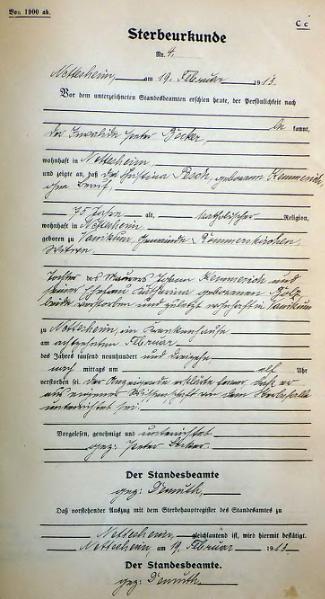 Von 1900 ab.
C c
Sterbeurkunde
Nr. 4.
Nettersheim, am 19. Februar 1913.
Vor dem unterzeichneten Standesbeamten erschien heute, der Persönlichkeit nach
be kannt,
der Invalide Peter Becker,
wohnhaft in Nettersheim,
und zeigte an, daß die Christina Pesch, geborenen Kemmerich,
ohne Beruf,
75 Jahre alt, katholischer Religion,
wohnhaft in Nettersheim
geboren zu Vanikum, Gemeinde Rommerskirchen,
Witwe
Tochter des Maurers Johann Kemmerich und
seiner Ehefrau geborenen
beide verstorben und zuletzt wohnhaft in Vanikum
zu Nettersheim, im Krankenhause
am achtzehnten Februar
des Jahres tausend neunhundert und dreizehn
nach mittags um elf Uhr
verstorben sei. Der Anzeigende erklärte ferner, daß er
aus eigener Wissenschaft von dem Sterbefalle
unterrichtet sei.
Vorgelesen, genehmigt und unterschrieben
gez: Peter Becker.
Der Standesbeamte
gez: Demuth.
Daß vorstehender Auszug mit dem Sterbehauptregister des Standesamtes zu
Nettersheim, gleichlautend ist, wird hiermit bestätigt.
Nettersheim, am 19. Februar 1913.
Der Standesbeamte.
gez: Demuth.